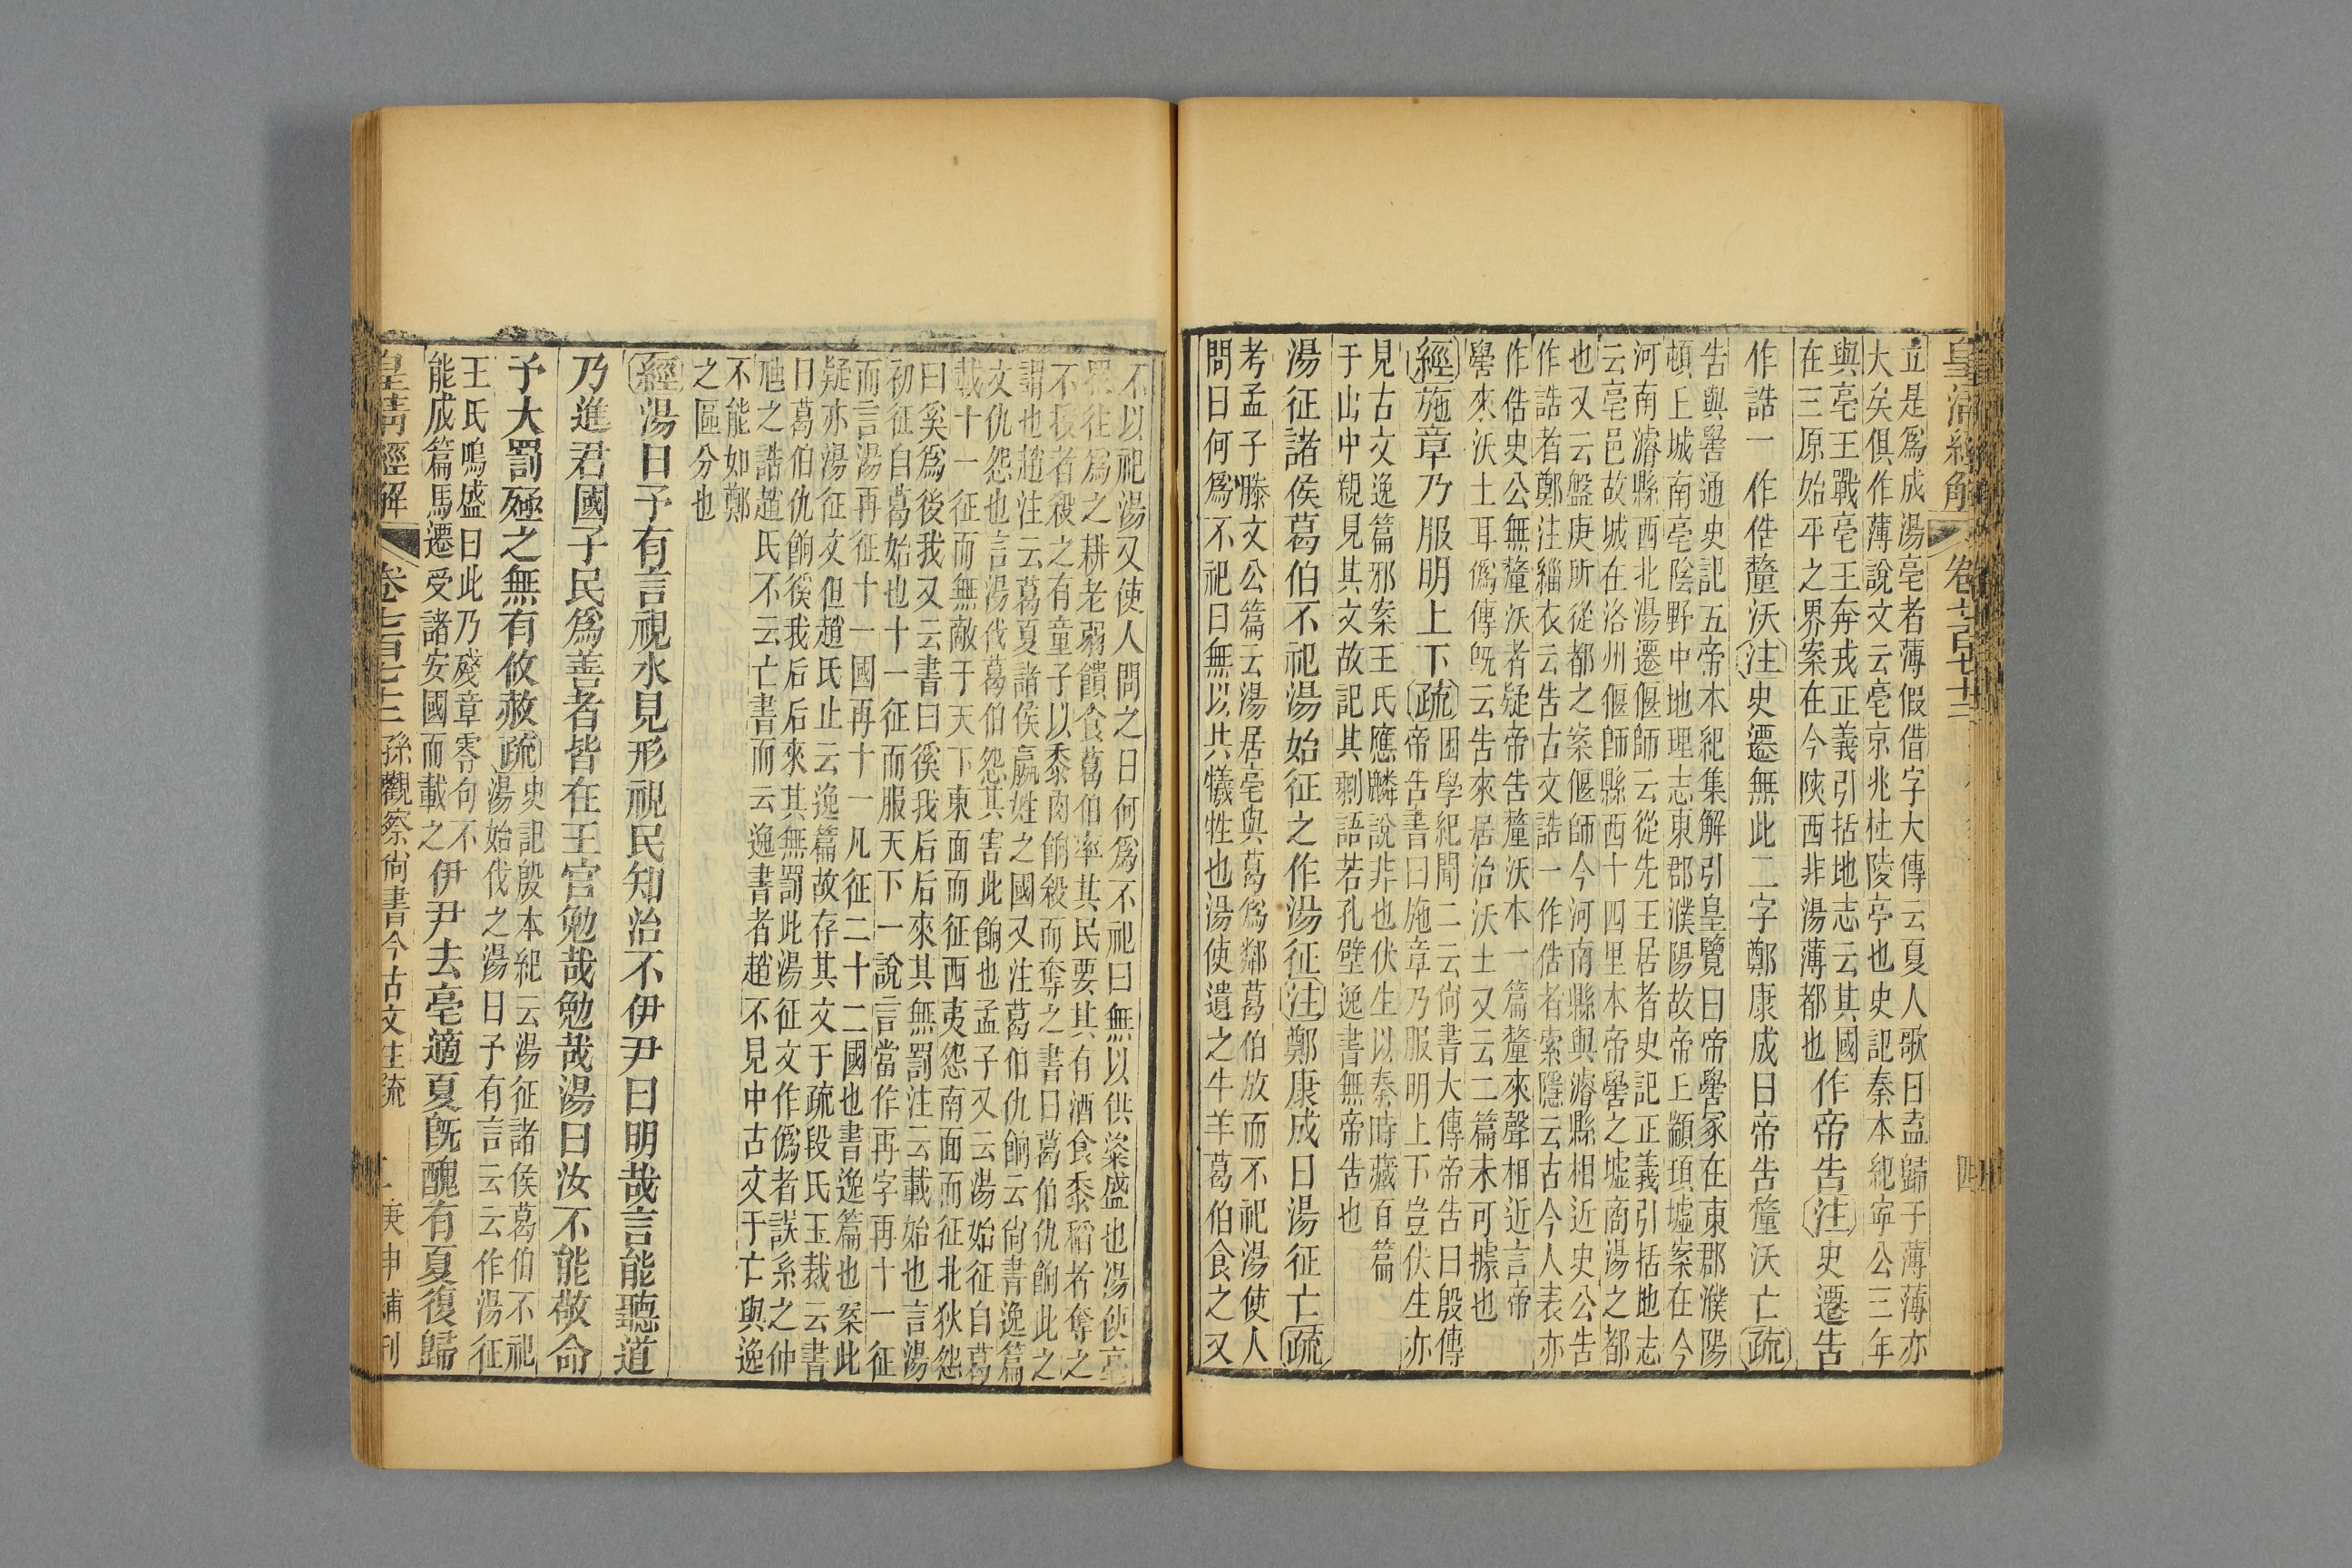 皇清經解 卷七百七十三 四
立是爲成湯亳者薄假借字大傳云夏人歌曰盍歸于薄薄亦
大矣俱作薄說文云亳京兆杜陵亭也史記秦本紀寧公三年
與亳王戰亳王奔戎正義引括地志云其國
在三原始平之界案在今陝西非湯薄都也
作帝告注史遷告
作誥一作俈釐沃注史遷無此二字鄭康成曰帝告釐沃亡疏
告與嚳通史記五帝本紀集解引皇覽曰帝嚳冢在東郡濮陽
頓丘城南亳陰野中地理志東郡濮陽故帝丘顓頊墟案在今
河南濬縣西北湯遷偃師云從先王居者史記正義引括地志
云亳邑故城在洛州偃師縣西十四里本帝嚳之墟商湯之都
也又云盤庚所從都之案偃師今河南縣與濬縣相近史公告
作誥者鄭注緇衣云告古文誥一作俈者索隱云古今人表亦
作俈史公無釐沃者疑帝告釐沃本一篇釐來聲相近言帝
嚳來沃土耳僞傳旣云告來居治沃土又云二篇未可據也
經施章乃服明上下疏
困學紀聞二云尙書大傳帝告曰殷傳
帝告書曰施章乃服明上下豈伏生亦
見古文逸篇邪案王氏應麟說非也伏生以秦時藏百篇
于山中親見其文故記其剩語若孔壁逸書無帝告也
湯征諸侯葛伯不祀湯始征之作湯征注鄭康成曰湯征亡疏
考孟子滕文公篇云湯居亳與葛爲鄰葛伯放而不祀湯使人
問曰何爲不祀曰無以共犧牲也湯使遺之牛羊葛伯食之又
不以祀湯又使人問之曰何爲不祀曰無以供粢盛也湯使亳
眾往爲之耕老弱饋食葛伯率其民要其有酒食黍稻者奪之
不授者殺之有童子以黍肉餉殺而奪之書曰葛伯仇餉此之
謂也趙注云葛夏諸侯嬴姓之國又注葛伯仇餉云尙書逸篇
文仇怨也言湯伐葛伯怨其害此餉也孟子又云湯始征自葛
載十一征而無敵于天下東面而征西夷怨南面而征北狄怨
曰奚爲後我又云書曰徯我后后來其無罰注云載始也言湯
初征自葛始也十一征而服天下一說言當作再字再十一征
而言湯再征十一國再十一凡征二十二國也書逸篇也案此
疑亦湯征文但趙氏止云逸篇故存其文于疏段氏玉裁云書
曰葛伯仇餉徯我后后來其無罰此湯征文作僞者誤系之仲
虺之誥趙氏不云亡書而云逸書者趙不見中古文于亡與逸
不能如鄭
之區分也
經湯曰予有言視水見形視民知治不伊尹曰明哉言能聽道
乃進君國子民爲善者皆在王官勉哉勉哉湯曰汝不能敬命
予大罰殛之無有攸赦疏
史記殷本紀云湯征諸侯葛伯不祀
湯始伐之湯曰予有言云云作湯征
王氏鳴盛曰此乃殘章零句不
能成篇馬遷受諸安國而載之
伊尹去亳適夏旣醜有夏復歸
皇清經解 卷七百七十三 孫觀察尙書今古文注疏 庚申補刊